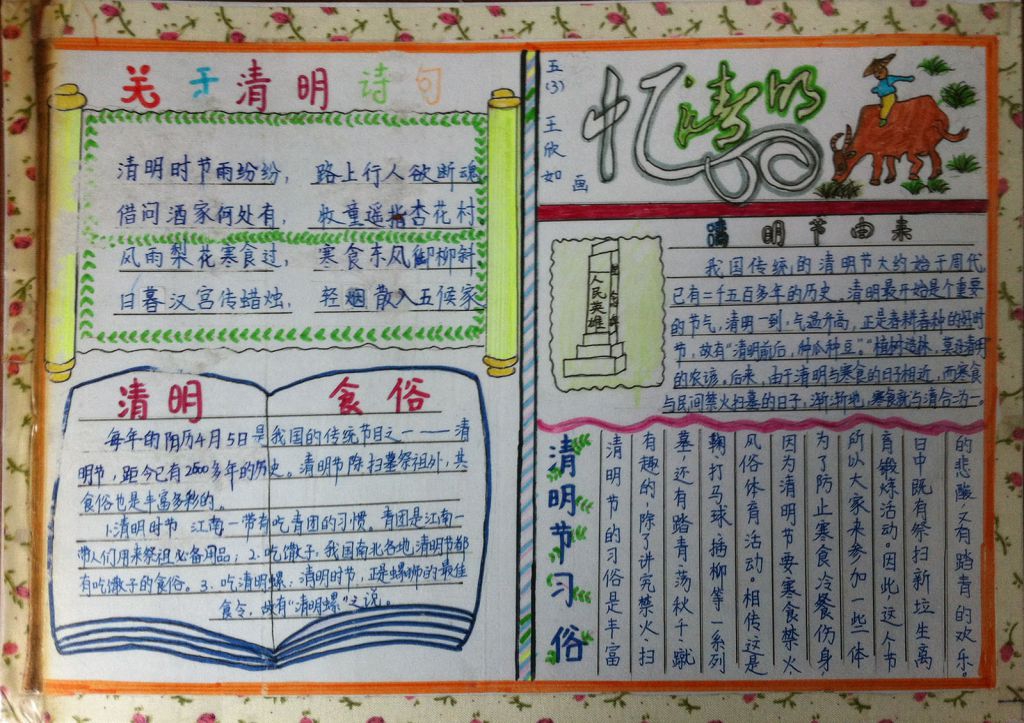 关于清明诗句
清明时节雨纷纷，路上行人欲断魂
借问酒家何处有，牧童遥指杏花村
风雨梨花寒食过，寒食东风御柳斜
日暮汉宫传蜡烛，轻烟散入五候家
清明食俗
每年的阳历4月5日是我国的传统节目之一——清
明节，距今已有2500多年的历史。清明节除扫墓祭祖外，其
食俗也是丰富多彩的。
1.清明时节江南一带有吃青团的习惯。青团是江南一
带人们用来祭祖必备用品；2.吃馓子：我国南北各地，清明节都
有吃馓子的食俗。3.吃清明螺：清明时节，正是螺蛳的最佳
食令，故有“清明螺”之说。
五(3)王欣如画
忆清明
清明节由来
人民英雄
我国传统的清明节大约始于周代
已有二千五百多年的历史。清明最开始是个重要
的节气，清明一到，气温升高，正是春耕春种的好时
节，故有“清明前后，种瓜种豆。”“植树造林，莫过清明”
的农谚。后来，由于清明与寒食的日子相近，而寒食
与民间禁火扫墓的日子，渐渐地，寒食就与清合二为一。
清明节习俗
清明节的习俗是丰富
有趣的，除了讲究禁火、扫
墓，还有踏青、荡秋千、蹴
鞠、打马球、插柳等一系列
风俗体育活动。相传这是
因为清明节要寒食禁火，
为了防止寒食冷餐伤身，
所以大家来参加一些体
育锻炼活动。因此，这人节
日中既有祭扫新坟生离
的悲酸，又有踏青的欢乐。